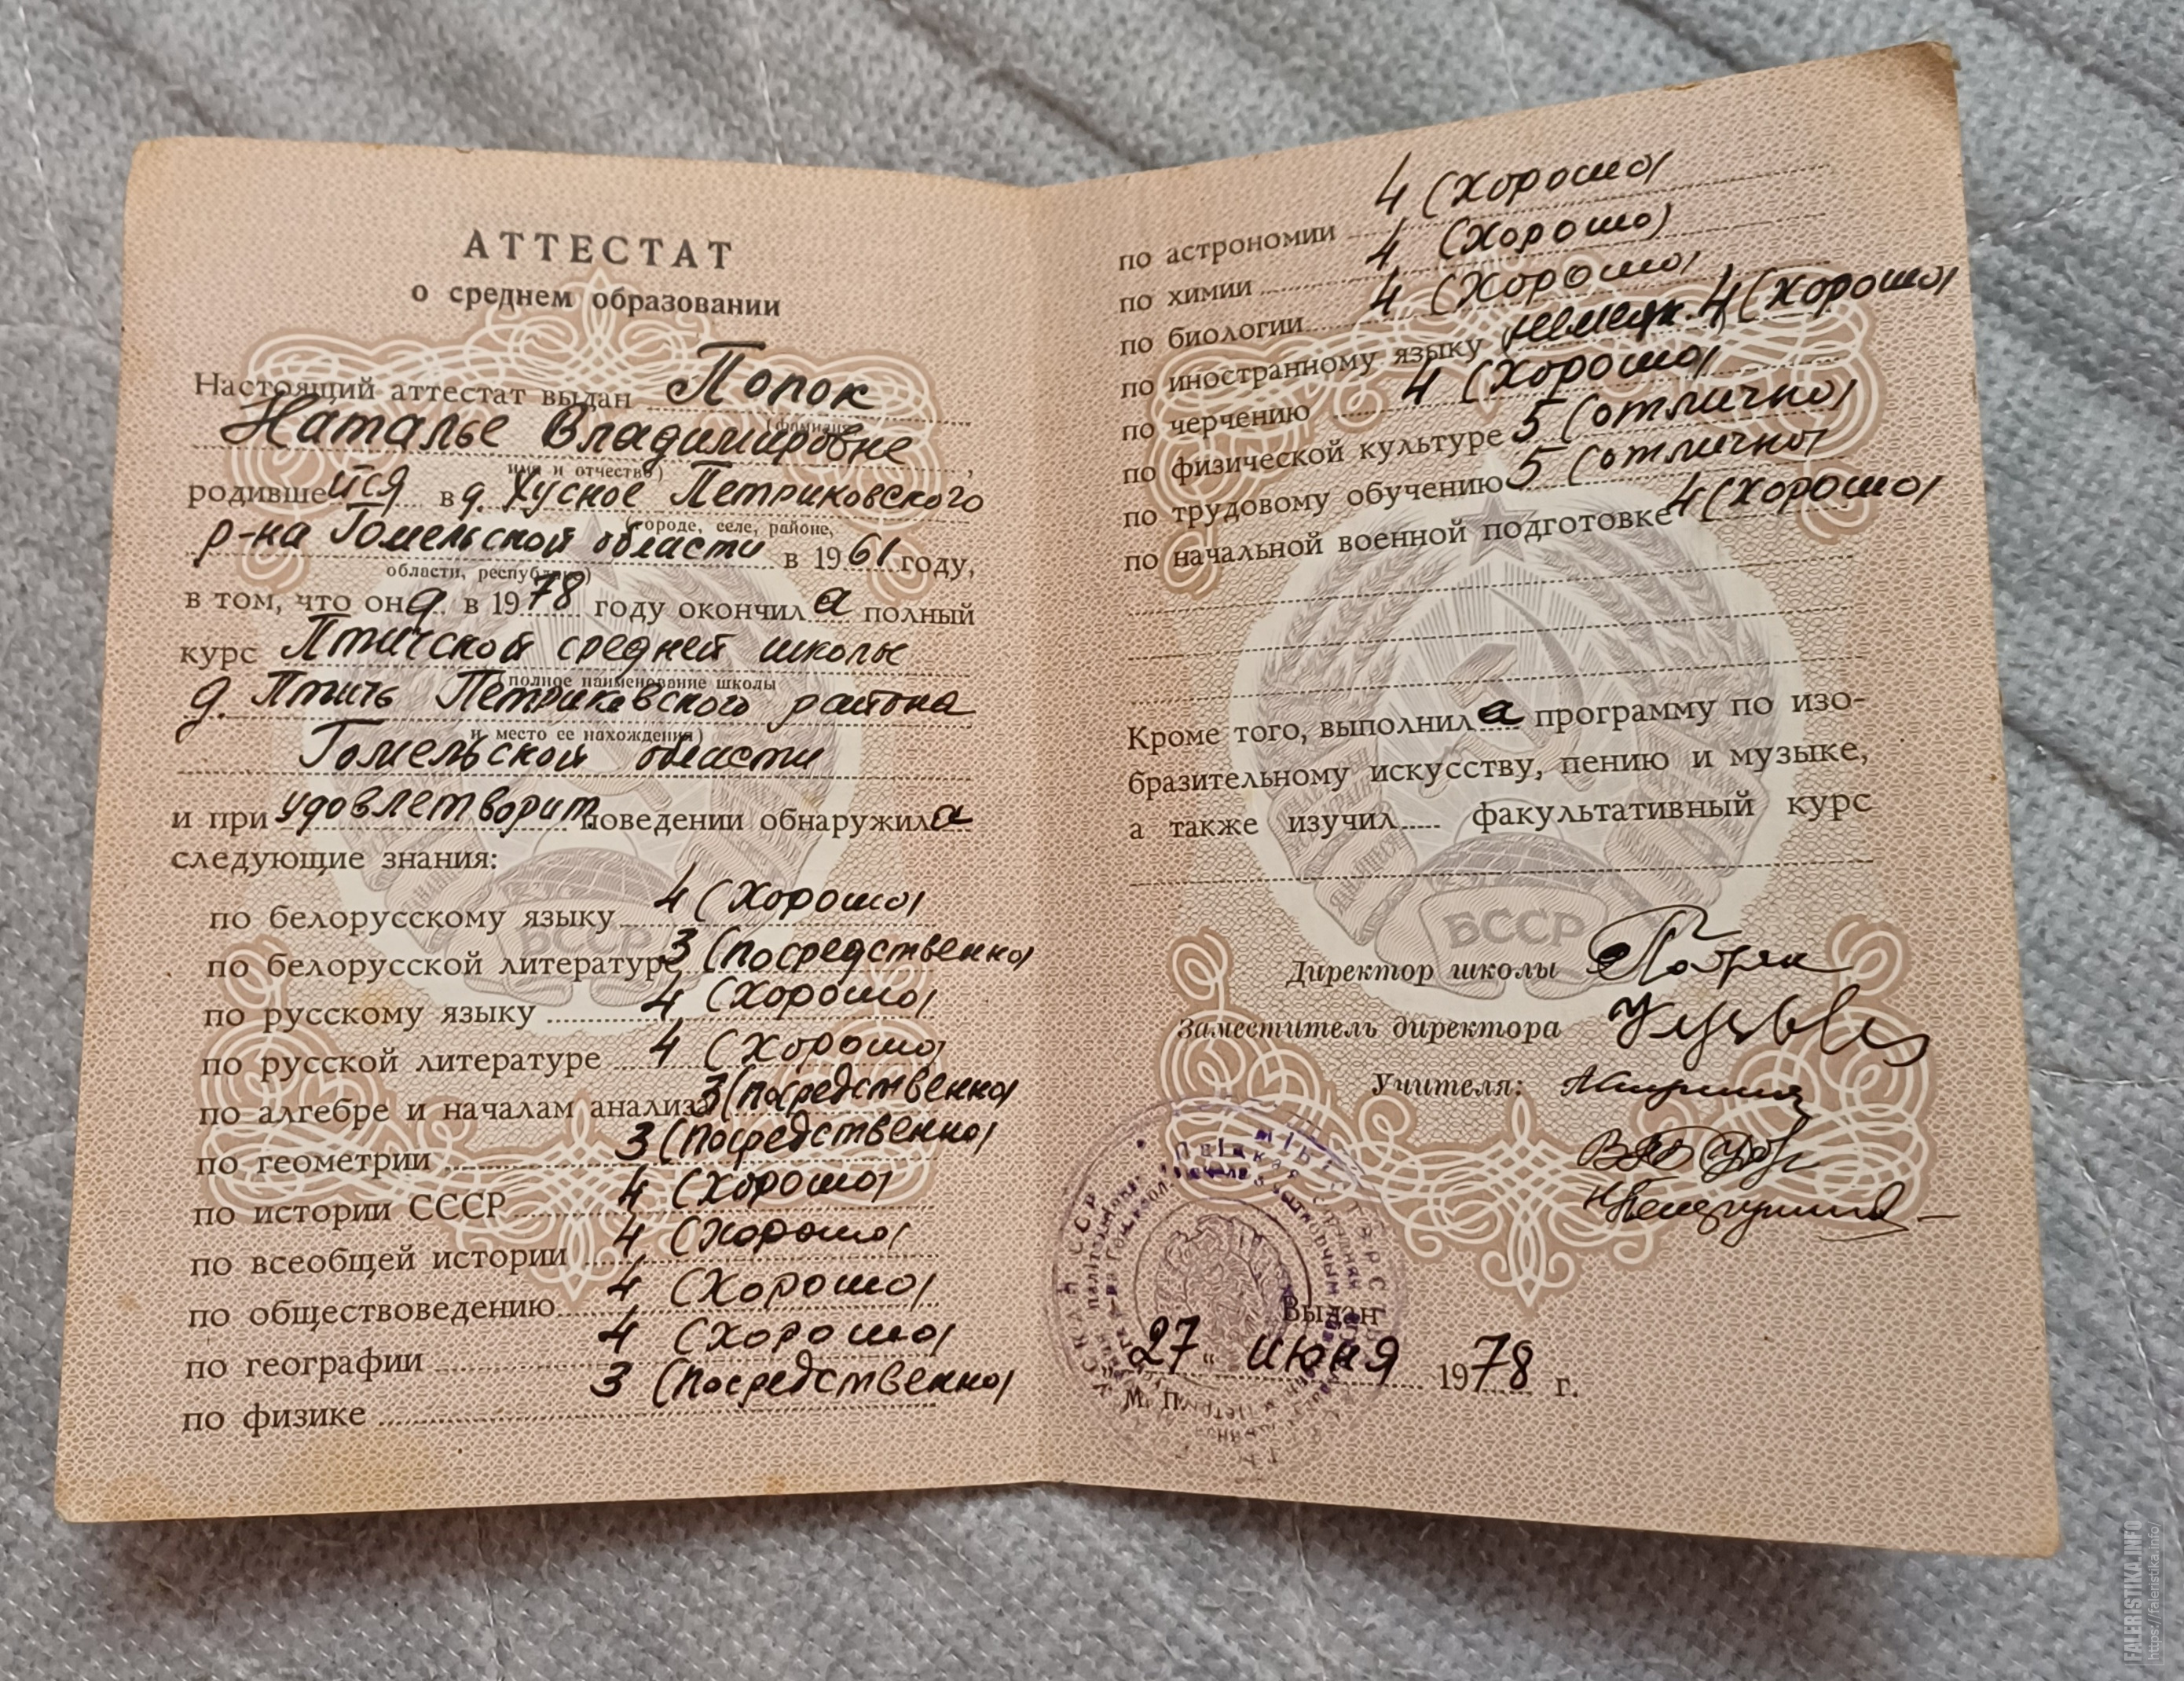 АТТЕСТАТ
о среднем образовании
Настоящий аттестат выдан Попок
(фамилия,
Наталье Владимировне,
имя и отчество)
родившейся в д. Хусное Петриковского
(городе, селе, районе,
р-на Гомельской области в 1961 году,
области, республике)
в том, что она в 1978 году окончила полный
курс Птичской средней школы
(полное наименование школы
д. Птичь Петриковского района
и место ее нахождения)
Гомельской области
и при удовлетворит. поведении обнаружила
следующие знания:
по белорусскому языку 4 (хорошо)
по белорусской литературе 3 (посредственно)
по русскому языку 4 (хорошо)
по русской литературе 4 (хорошо)
по алгебре и началам анализа 3 (посредственно)
по геометрии 3 (посредственно)
по истории СССР 4 (хорошо)
по всеобщей истории 4 (хорошо)
по обществоведению 4 (хорошо)
по географии 4 (хорошо)
по физике 3 (посредственно)
БССР
по астрономии 4 (хорошо)
по химии 4 (хорошо)
по биологии 4 (хорошо)
по иностранному языку (немецк.) 4 (хорошо)
по черчению 4 (хорошо)
по физической культуре 5 (отлично)
по трудовому обучению 5 (отлично)
по начальной военной подготовке 4 (хорошо)
Кроме того, выполнила программу по изо-
бразительному искусству, пению и музыке,
а также изучил факультативный курс
БССР
Директор школы
Заместитель директора
Учителя:
Выдан
27 " июня 1978 г.
М. П.
FALERISTIKA.INFO
https://faleristika.info/